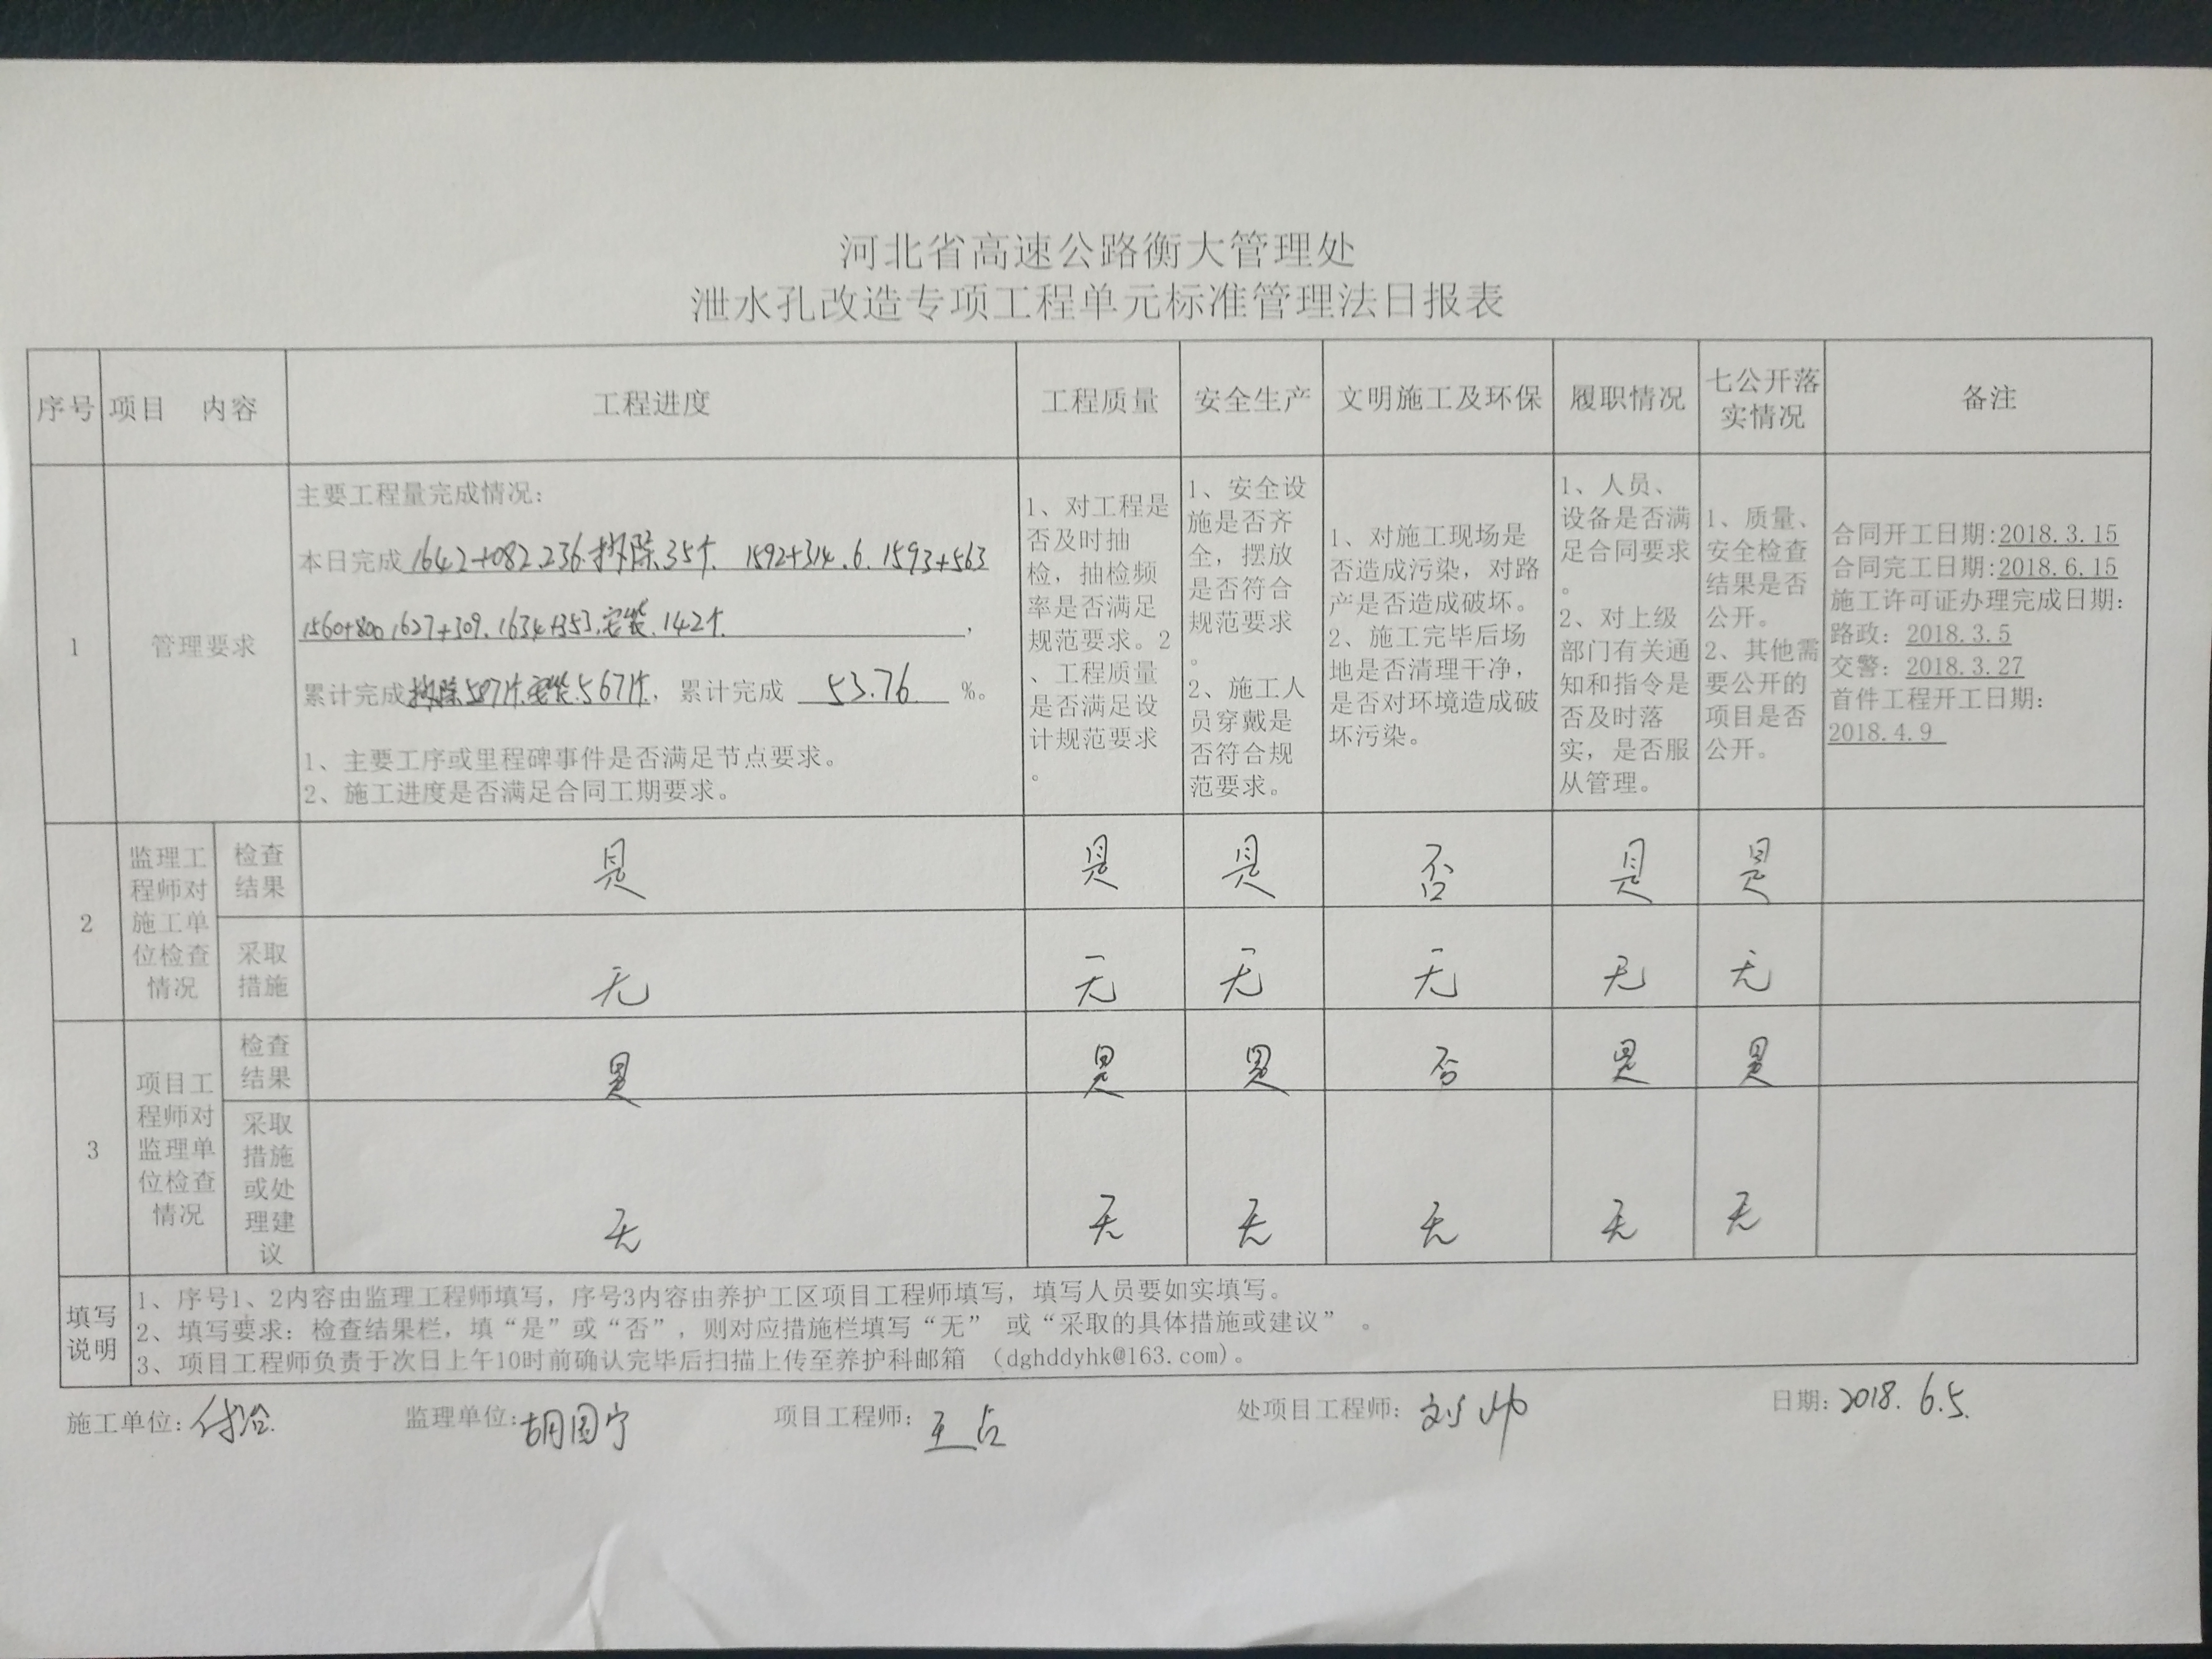 河北省高速公路衡大管理处
泄水孔改造专项工程单元标准管理法日报表
序号 项目 内容 工程进度 工程质量 安全生产 文明施工及环保 履职情况 七公开落
实情况 备注
1 管理要求
主要工程量完成情况：
本日完成 1642+082.236.拆除.35个. 1592+314.6.1593+563
1560+800 1627+309.1634+353.安装.142个. ，
累计完成拆除587个.安装.567个，累计完成 53.76 %。
1、主要工序或里程碑事件是否满足节点要求。
2、施工进度是否满足合同工期要求。
1、对工程是
否及时抽
检，抽检频
率是否满足
规范要求。2
、工程质量
是否满足设
计规范要求
。
1、安全设
施是否齐
全，摆放
是否符合
规范要求
。
2、施工人
员穿戴是
否符合规
范要求。
1、对施工现场是
否造成污染，对路
产是否造成破坏。
2、施工完毕后场
地是否清理干净，
是否对环境造成破
坏污染。
1、人员、
设备是否满
足合同要求
。
2、对上级
部门有关通
知和指令是
否及时落
实，是否服
从管理。
1、质量、
安全检查
结果是否
公开。
2、其他需
要公开的
项目是否
公开。
合同开工日期:2018.3.15
合同完工日期:2018.6.15
施工许可证办理完成日期：
路政：2018.3.5
交警：2018.3.27
首件工程开工日期：
2018.4.9
2
监理工
程师对
施工单
位检查
情况
检查
结果
是 是 是 否 是 是
采取
措施
无 无 无 无 无 无
3
项目工
程师对
监理单
位检查
情况
检查
结果
是 是 是 否 是 是
采取
措施
或处
理建
议
无 无 无 无 无 无
填写
说明
1、序号1、2内容由监理工程师填写，序号3内容由养护工区项目工程师填写，填写人员要如实填写。
2、填写要求：检查结果栏，填“是”或“否”，则对应措施栏填写“无” 或“采取的具体措施或建议” 。
3、项目工程师负责于次日上午10时前确认完毕后扫描上传至养护科邮箱 （dghddyhk@163.com)。
施工单位： 监理单位:胡国宁 项目工程师：王占 处项目工程师：刘帅 日期：2018.6.5.